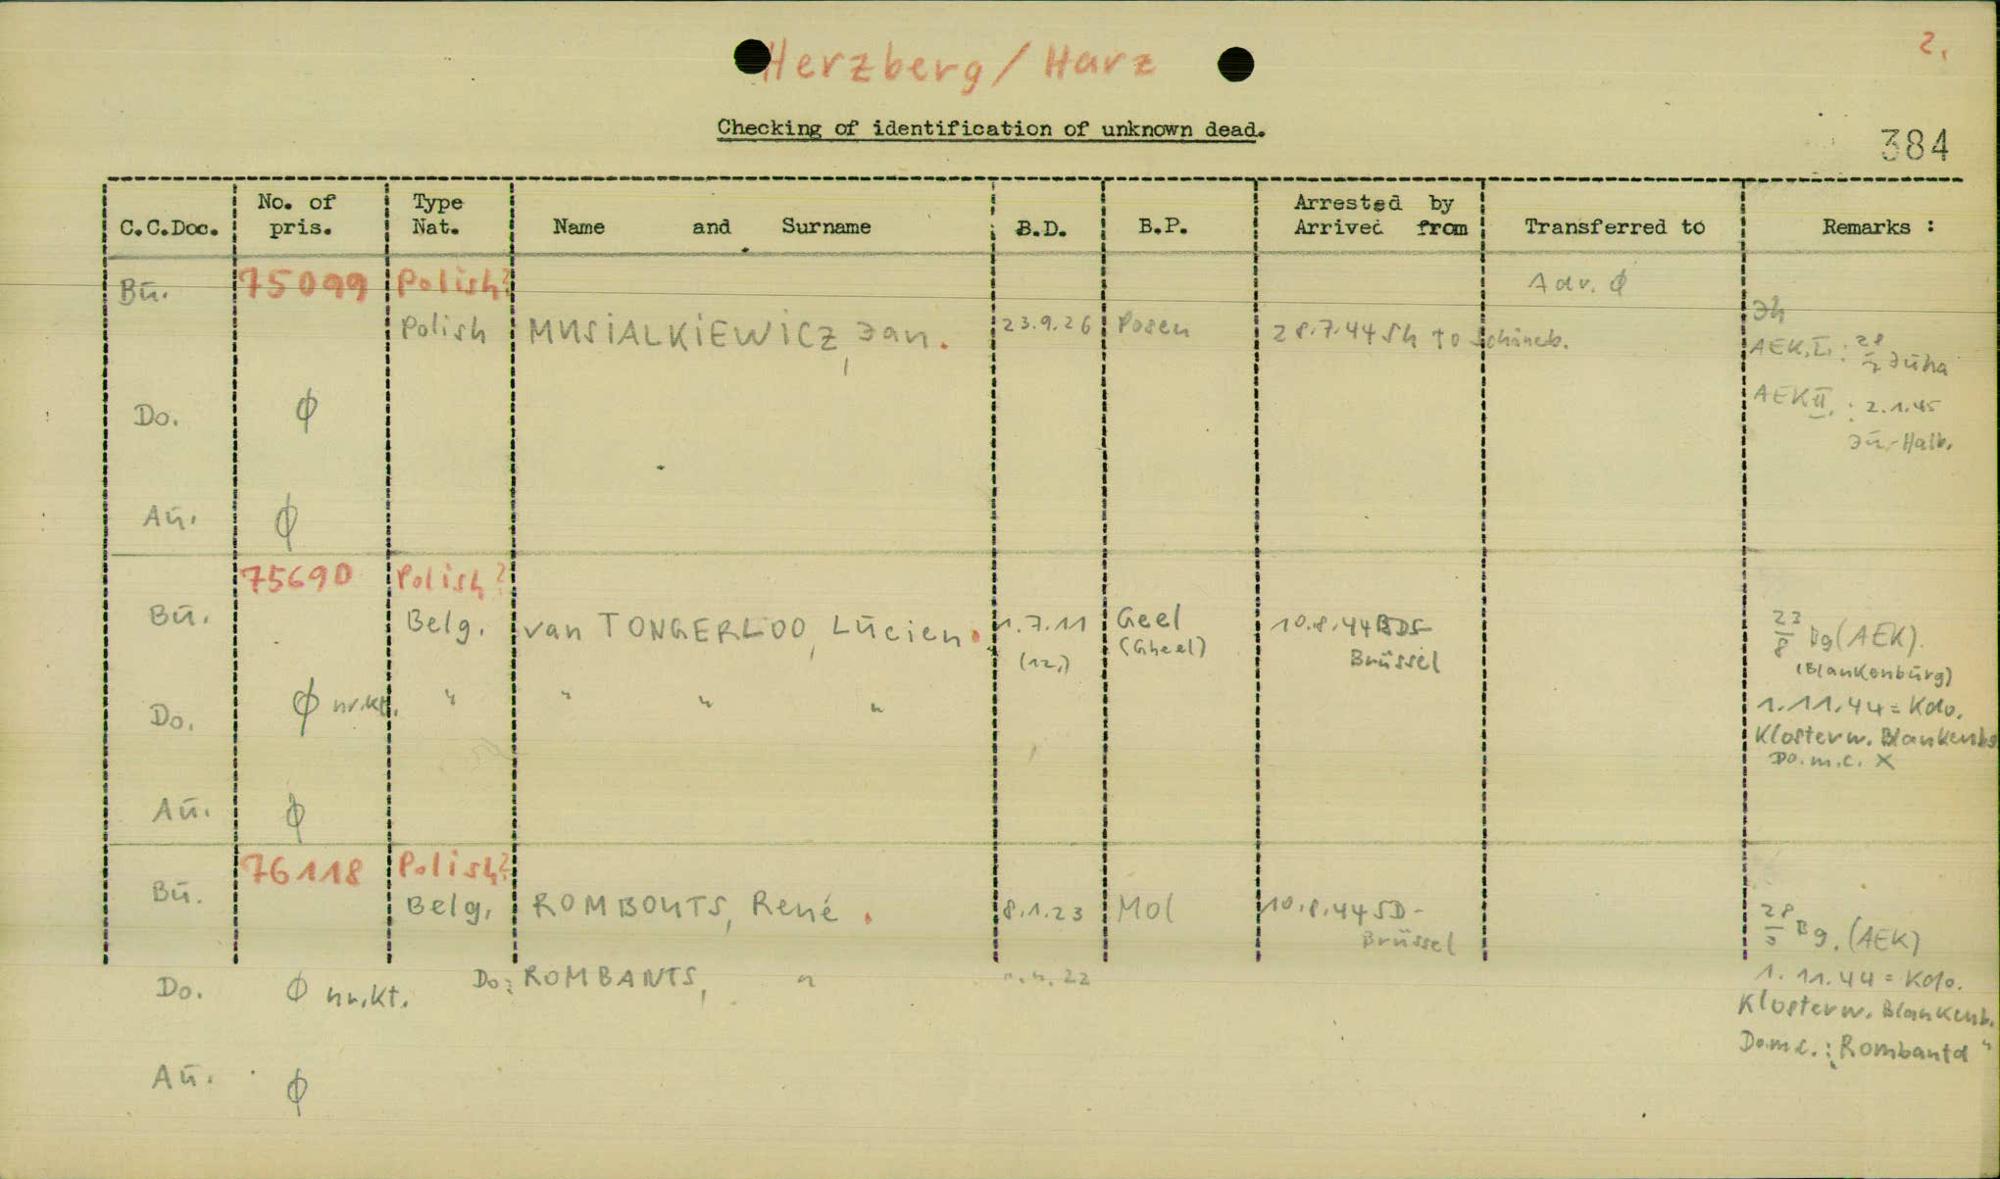 Herzberg / Harz
2.
Checking of identification of unknown dead.
384
C.C.Doc. No. of pris. Type Nat. Name and Surname B.D. B.P. Arrested by Arrived from Transferred to Remarks :
Bū. 75099 Polish? Adv. Ø
Polish MUSiALKiEWiCZ, Jan. 23.9.26 Posen 28.7.44 Sh to Schöneb. Jh
AEK.I. : 28/7 Jūha
Do. Ø AEK II. : 2.1.45
Jū.-Halb.
Aū. Ø
75690 Polish?
Bū. Belg. van TONGERLOO, Lūcien. 1.7.11 Geel 10.8.44 BDS 23/8 Bg (AEK).
(12.) (Gheel) Brüssel (Blankenbūrg)
Do. Ø nr.kt. " " " " 1.11.44 = Kdo.
Klosterw. Blankenbg
Do. m.c. X
Aū. Ø
76118 Polish?
Bū. Belg. ROMBOUTS, René. 8.1.23 Mol 10.8.44 SD- Bg. (AEK)
Brüssel
Do. Ø nr.kt. Do: ROMBANTS, " 1. 11.44 = Kdo.
Klosterw. Blankenb.
Do.m.c. : Rombantd "
Aū. Ø